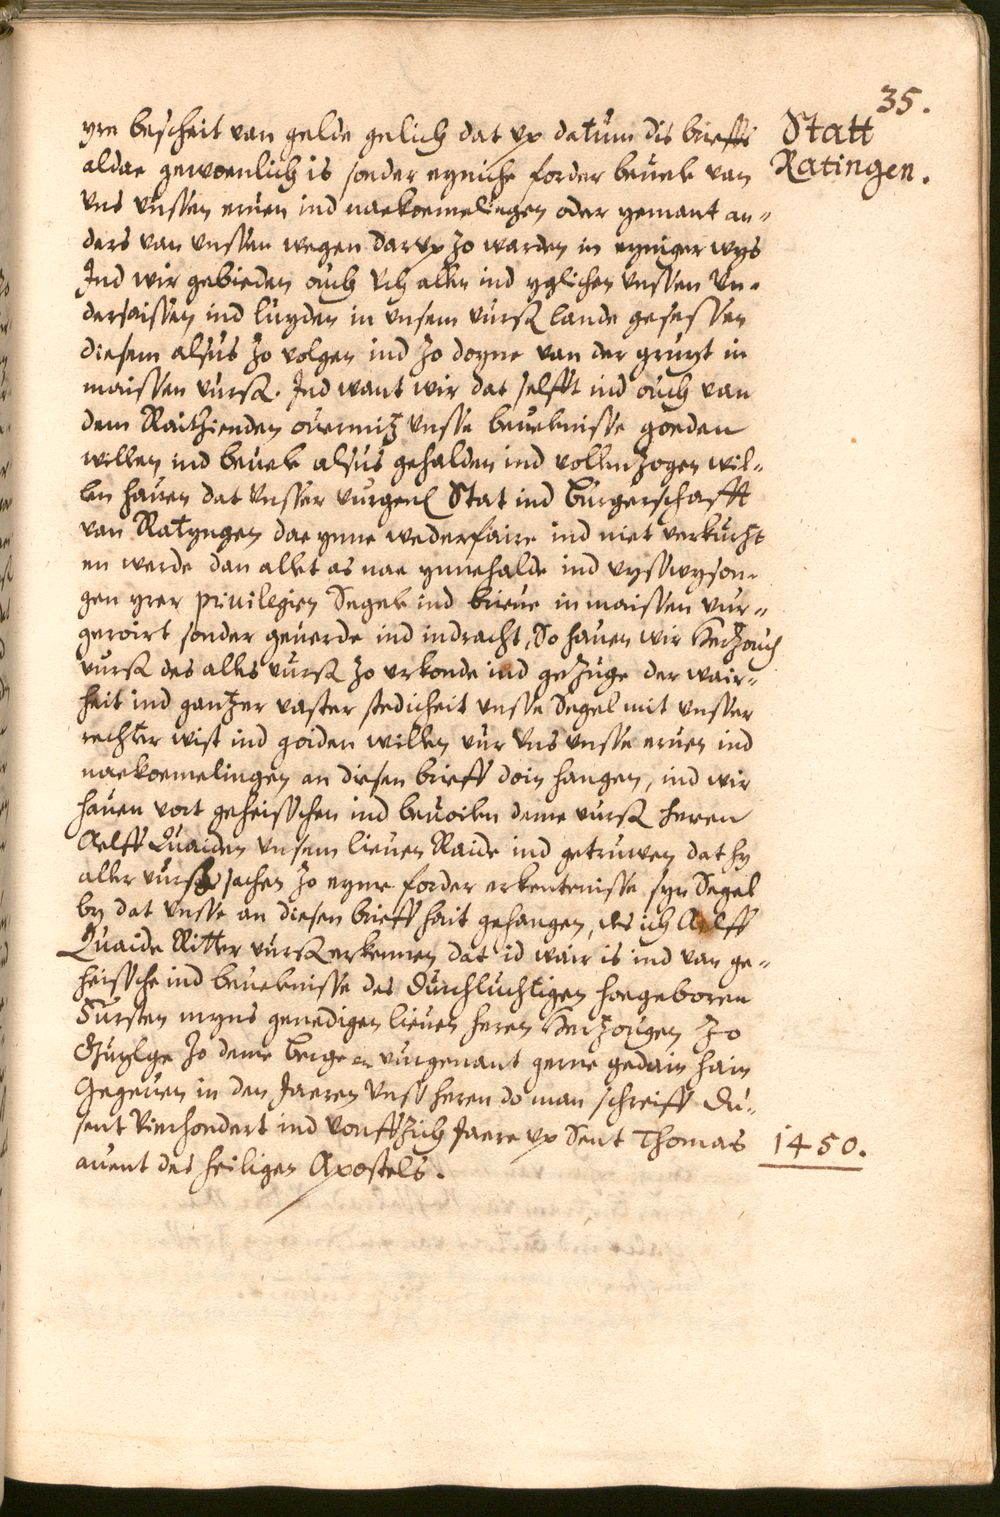 35.
Statt
Ratingen.
yrn bescheit van gelde gelich dat vp datum dis brieffs
aldae gewoenlich is sonder eyniche forder beuele van
vns vnssen eruen ind naekoemelingen oder yemant an=
ders van vnssen wegen dar vp zo warden in eyniger wys
Ind wir gebieden ouch vch allen ind yglichen vnssen vn=
dersaissen ind luyden in vnsem vursz lande gesessen
diesem alsus zo volgen ind zo doyne van der gruyt in
maissen vursz. Ind want wir dat selfft ind ouch van
dem Raitzienden ouermitz vnsse beuelnisse goeden
willen ind beuele alsus gehalden ind vollenzogen wil=
len hauen dat vnsser vurgen Stat ind Burgerschafft
van Ratyngen dae ynne wederfaire ind niet verkurtzt
en werde dan allet as nae ynnehalde ind vysswyson=
gen yrer priuilegien Segele ind brieue in maissen vur=
geroirt sonder geuerde ind indracht, So hauen wir Hertzouch
vursz des alles vursz zo vrkonde ind gezuge der wair=
heit ind gantzer vaster stedicheit vnsse Segel mit vnsser
rechter wist ind goiden willen vur vns vnsse eruen ind
naekoemelingen an diesen brieff doin hangen, ind wir
hauen vort geheisschen ind beuoilen deme vursz heren
Aelff Quaiden vnsem lieuen Raide ind getruwen dat hy
aller vursz sachen zo eynre forder erkentenisse syn Segel
by dat vnsse an diesen brieff hait gehangen, des ich Aelff
Quaide Ritter vursz erkennen dat id wair is ind van ge=
heissche ind beuelnisse des durchluchtigen hoegeboren
Fursten myns genedigen lieuen heren Hertzougen zo
Guylge zo deme Berge vurgenant gerne gedain hain
Gegeuen in den Jaeren vnss heren do man schreiff du=
sent vierhondert ind vonffzich Jaere vp Sent Thomas
auent des heiligen Apostels.
1450.